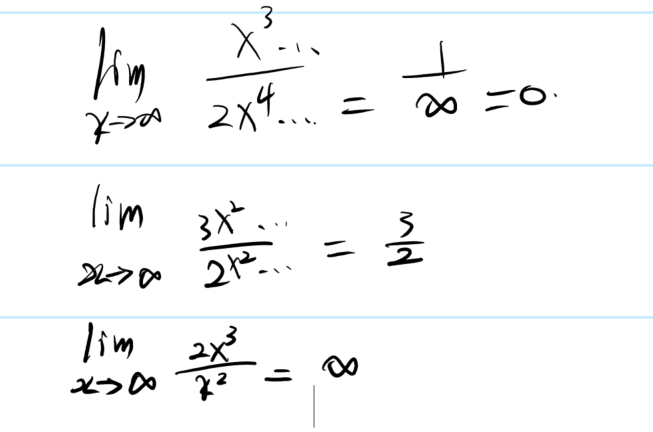 lim x→∞ x³... / 2x⁴... = 1/∞ = 0.
lim x→∞ 3x²... / 2x²... = 3/2
lim x→∞ 2x³ / x² = ∞